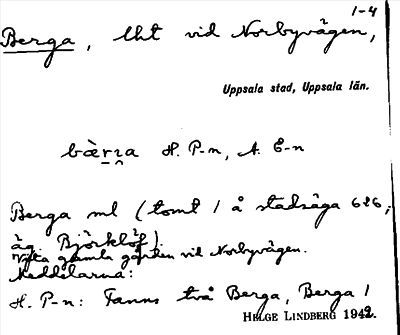 1-4
Berga, lht vid Norbyvägen,
Uppsala stad, Uppsala län.
bæ̀rɪ̯a H. P-n, A. E-n
Berga ml (tomt 1 å stadsäga 626,
äg. Björklöf).
gamla gården vid Norbyvägen.
Meddelarna:
H. P-n: Fanns två Berga, Berga 1
HELGE LINDBERG 1942.